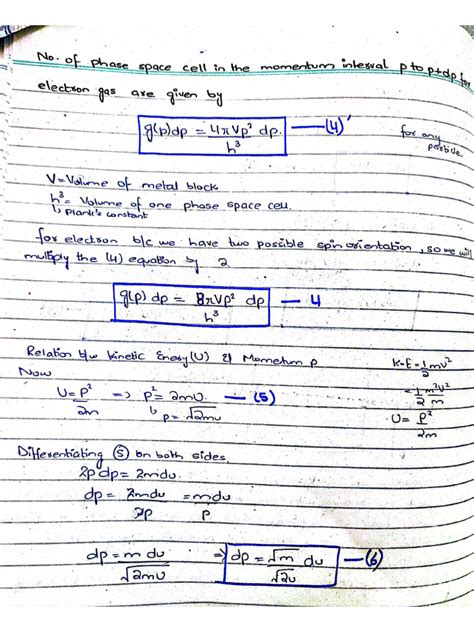 No. of phase space cell in the momentum interval p to p+dp for
electron gas are given by
g(p)dp = 4πVp² dp. —(4)'
h³
for any
particle.
V=Volume of metal block
h³= Volume of one phase space cell.
↳ Plank's constant
for electron b/c we have two possible spin orientation, so we will
multiply the (4) equation by 2
g(p) dp = 8πVp² dp — 4
h³
Relation b/w kinetic Energy(U) & Momentum p
K·E = 1/2 mv²
Now
= 1/2 m²v²/m
U = p²/2m => p² = 2mU — (5)
↳ p = √2mU
U = p²/2m
Differentiating (5) on both sides.
2p dp = 2mdu
dp = 2mdu/2p = mdu/p
dp = m du/√2mu => dp = √m/√2u du —(6)